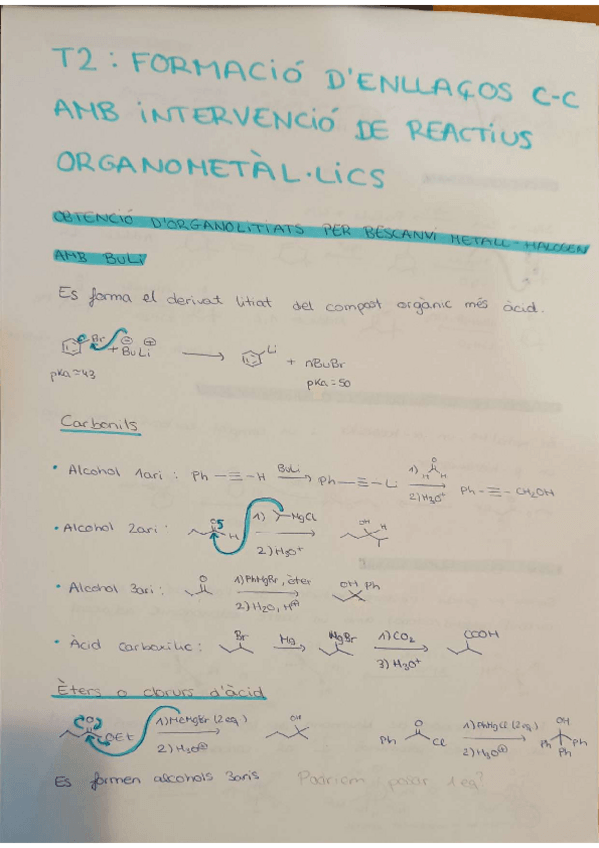 T2: FORMACIÓ D'ENLLAÇOS C-C
AMB INTERVENCIÓ DE REACTIUS
ORGANOMETÀL·LICS
OBTENCIÓ D'ORGANOLITIATS PER BESCANVI METALL-HALOGEN
AMB BuLi
Es forma el derivat litiat del compost orgànic més àcid.
Br + BuLi ⊖ ⊕ → Li + nBuBr
pKa=43 pKa=50
Carbonils
• Alcohol 1ari: Ph-≡-H BuLi → Ph-≡-Li 1) O H H 2) H3O+ → Ph-≡-CH2OH
• Alcohol 2ari: O H 1) MgCl 2) H3O+ → OH H
• Alcohol 3ari: O 1) PhMgBr, èter 2) H2O, H⊕ → OH Ph
• Àcid carboxílic: Br Mg → MgBr 1) CO2 3) H3O+ → COOH
Èters o clorurs d'àcid
O OEt 1) MeMgBr (2eq) 2) H3O⊕ → OH Ph O Cl 1) PhMgCl (2eq) 2) H3O⊕ → OH Ph Ph Ph
Es formen alcohols 3aris Podríem posar 1eq?